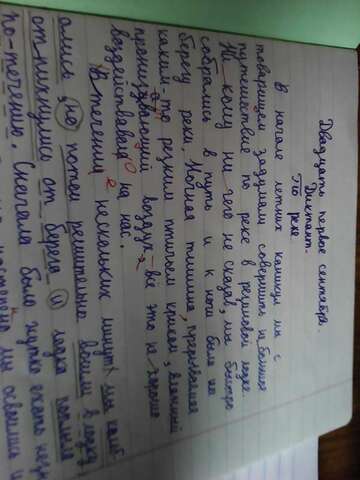 Двадцать первое сентября.
Диктант.
По реке
В начале летних каникул мы с
товарищем задумали совершить не большое
путешествие по реке в резиновой лодке
Ни кому ни чего не сказав, мы быстро
собрались в путь и к ночи были на
берегу реки. Ночная тишина, прерываемая
каким-то резким птичьем криком, влажный
пронизывающий воздух - всё это не хорошо
воздействавало на нас.
В течении нескольких минут мы колеб
ались, но потом решительно вошли в лодку,
оттолкнулись от берега и лодка поплыла
по-течению. Сначала было жутко ехать
мы освоились и